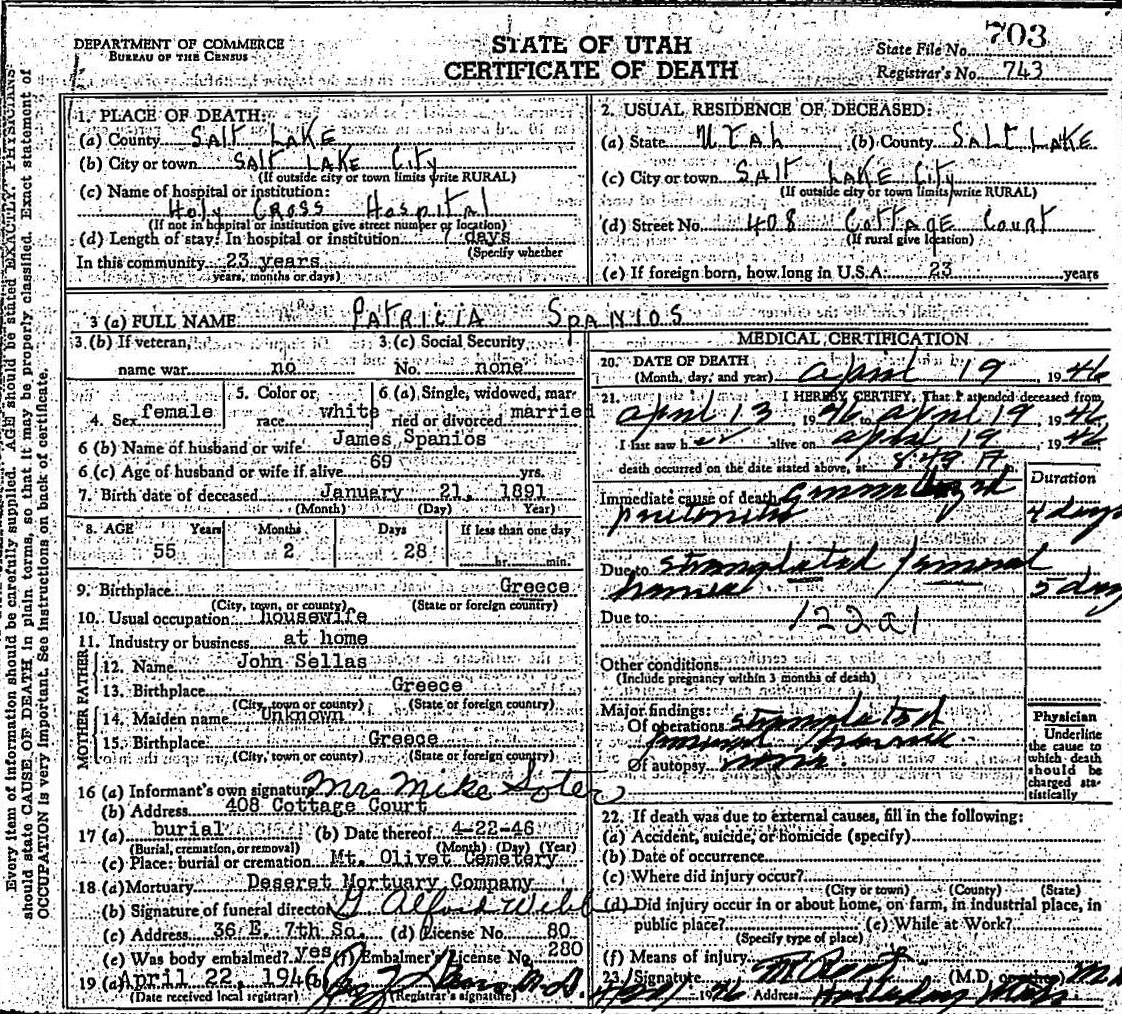 DEPARTMENT OF COMMERCE
BUREAU OF THE CENSUS
STATE OF UTAH
CERTIFICATE OF DEATH
State File No. 703
Registrar's No. 743
Every item of information should be carefully supplied. AGE should be stated EXACTLY. PHYSICIANS
should state CAUSE OF DEATH in plain terms, so that it may be properly classified. Exact statement of
OCCUPATION is very important. See instructions on back of certificate.
1. PLACE OF DEATH:
(a) County SALT LAKE
(b) City or town SALT LAKE CITY
(If outside city or town limits write RURAL)
(c) Name of hospital or institution:
Holy CROSS Hospital
(If not in hospital or institution give street number or location)
(d) Length of stay: In hospital or institution 7 days
(Specify whether
In this community 23 years
years, months or days)
2. USUAL RESIDENCE OF DECEASED:
(a) State UTAH (b) County SALT LAKE
(c) City or town SALT LAKE CITY
(If outside city or town limits write RURAL)
(d) Street No. 408 COTTAGE COURT
(If rural give location)
(e) If foreign born, how long in U.S.A. 23 years
3 (a) FULL NAME PATRICIA SPANIOS
3. (b) If veteran, name war no
3. (c) Social Security No. none
4. Sex female
5. Color or race white
6 (a) Single, widowed, married or divorced married
6 (b) Name of husband or wife James Spanios
6 (c) Age of husband or wife if alive 69 yrs.
7. Birth date of deceased January 21, 1891
(Month) (Day) Year)
8. AGE Years Months Days If less than one day
55 2 28 hr. min.
9. Birthplace Greece
(City, town, or county) (State or foreign country)
10. Usual occupation housewife
11. Industry or business at home
FATHER
12. Name John Sellas
13. Birthplace Greece
(City, town or county) (State or foreign country)
MOTHER
14. Maiden name Unknown
15. Birthplace Greece
(City, town or county) (State or foreign country)
16 (a) Informant's own signature Mrs Mike Soter
(b) Address 408 Cottage Court
17 (a) burial (b) Date thereof 4-22-46
(Burial, cremation, or removal) (Month) (Day) (Year)
(c) Place: burial or cremation Mt. Olivet Cemetery
18 (a) Mortuary Deseret Mortuary Company
(b) Signature of funeral director G Alford Webb
(c) Address 36 E. 7th So. (d) License No. 80
(e) Was body embalmed? yes (f) Embalmer's License No. 280
19 (a) April 22, 1946 (b) M.D.
(Date received local registrar) (Registrar's signature)
MEDICAL CERTIFICATION
20. DATE OF DEATH
(Month, day, and year) April 19 1946
21. I HEREBY CERTIFY, That I attended deceased from
April 13, 1946 to April 19, 1946
I last saw her alive on April 19 1946
death occurred on the date stated above, at 8:49 A m.
Duration
Immediate cause of death Generalized
peritonitis 4 days
Due to strangulated femoral
hernia 5 days
Due to: 122a1
Other conditions
(Include pregnancy within 3 months of death)
Major findings:
Of operations strangulated
femoral hernia
Of autopsy none
Physician
Underline
the cause to
which death
should be
charged sta-
tistically
22. If death was due to external causes, fill in the following:
(a) Accident, suicide, or homicide (specify)
(b) Date of occurrence
(c) Where did injury occur?
(City or town) (County) (State)
(d) Did injury occur in or about home, on farm, in industrial place, in
public place? (e) While at Work?
(Specify type of place)
(f) Means of injury
23. Signature (M.D. or other) M.D.
1946 Address Holladay Utah